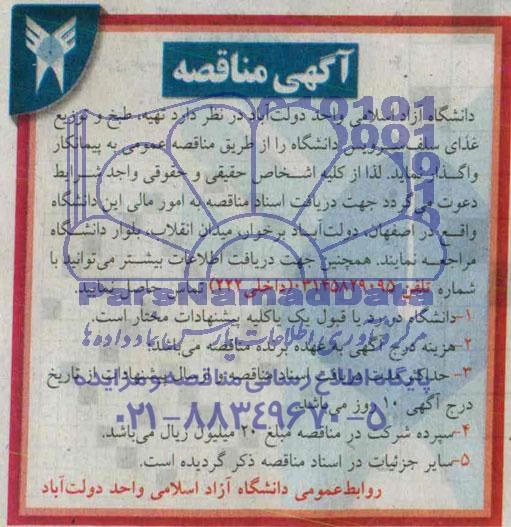 آگهی مناقصه
دانشگاه آزاد اسلامی واحد دولت‌آباد در نظر دارد تهیه، طبخ و توزیع
غذای سلف‌سرویس دانشگاه را از طریق مناقصه عمومی به پیمانکار
واگذار نماید. لذا از کلیه اشخاص حقیقی و حقوقی واجد شرایط
دعوت می‌گردد جهت دریافت اسناد مناقصه به امور مالی این دانشگاه
واقع در اصفهان، دولت‌آباد برخوار، میدان انقلاب، بلوار دانشگاه
مراجعه نمایند. همچنین جهت دریافت اطلاعات بیشتر می‌توانید با
شماره تلفن ۰۳۱۴۵۸۲۹۰۹۵ (داخلی ۲۲۲) تماس حاصل نمایید.
ParsNamadData
۱-دانشگاه در رد یا قبول یک یا کلیه پیشنهادات مختار است.
مرکز فرآوری اطلاعات پارس نماد داده ها
۲-هزینه درج آگهی به عهده برنده مناقصه می‌باشد.
۳-حداکثر مدت دریافت اسناد مناقصه و ارسال پیشنهادات از تاریخ
پایگاه اطلاع رسانی مناقصه و مزایده
درج آگهی ۱۰ روز می‌باشد.
۰۲۱-۸۸۳۴۹۶۷۰-۵
۴-سپرده شرکت در مناقصه مبلغ ۲۰ میلیون ریال می‌باشد.
۵-سایر جزئیات در اسناد مناقصه ذکر گردیده است.
روابط‌عمومی دانشگاه آزاد اسلامی واحد دولت‌آباد